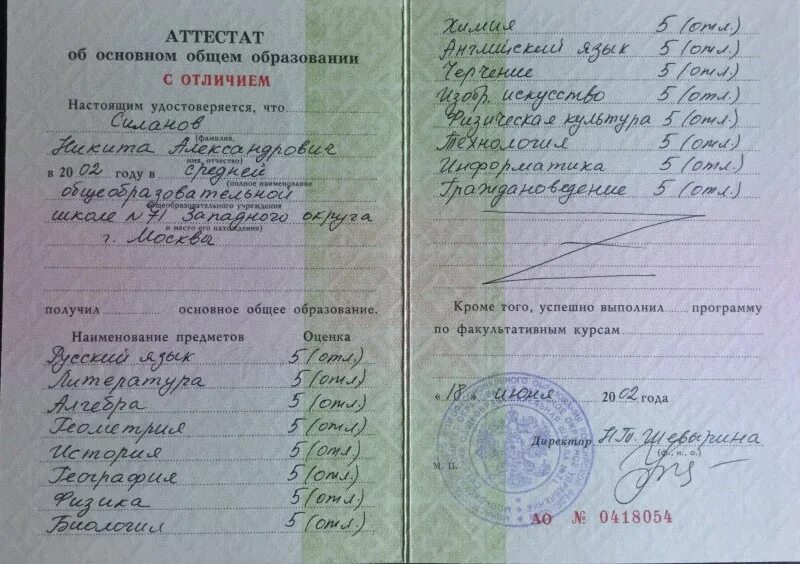 АТТЕСТАТ
об основном общем образовании
С ОТЛИЧИЕМ
Настоящим удостоверяется, что
Силанов
(фамилия,
Никита Александрович
имя, отчество)
в 2002 году в средней
(полное наименование
общеобразовательной
общеобразовательного учреждения
школе №71 Западного округа
и место его нахождения)
г. Москва
получил основное общее образование.
Наименование предметов Оценка
Русский язык 5 (отл.)
Литература 5 (отл.)
Алгебра 5 (отл.)
Геометрия 5 (отл.)
История 5 (отл.)
География 5 (отл.)
Физика 5 (отл.)
Биология 5 (отл.)
Химия 5 (отл.)
Английский язык 5 (отл.)
Черчение 5 (отл.)
Изобр. искусство 5 (отл.)
Физическая культура 5 (отл.)
Технология 5 (отл.)
Информатика 5 (отл.)
Граждановедение 5 (отл.)
Кроме того, успешно выполнил программу
по факультативным курсам
«18» июня 2002 года
Директор Н.П. Шевырина
(ф. и. о.)
М. П.
АО № 0418054